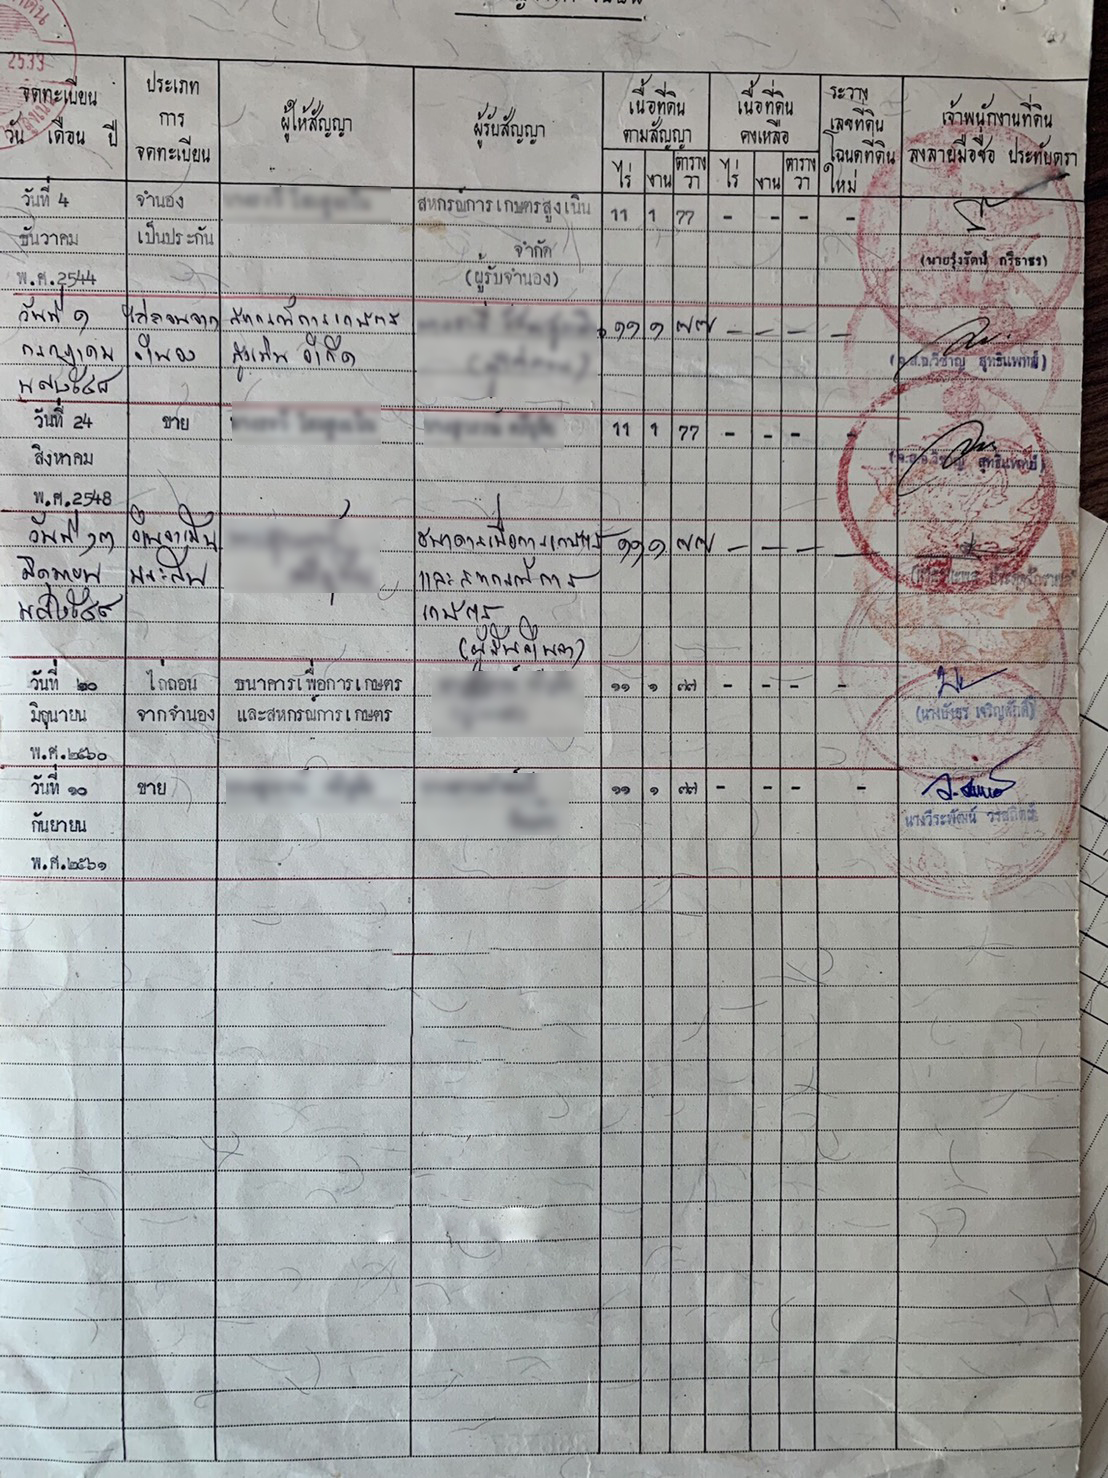 2533
จดทะเบียน
วัน เดือน ปี
ประเภท
การ
จดทะเบียน
ผู้ให้สัญญา
ผู้รับสัญญา
เนื้อที่ดิน
ตามสัญญา
ไร่ งาน ตาราง
วา
เนื้อที่ดิน
คงเหลือ
ไร่ งาน ตาราง
วา
ระวาง
เลขที่ดิน
โฉนดที่ดิน
ใหม่
เจ้าพนักงานที่ดิน
ลงลายมือชื่อ ประทับตรา
วันที่ 4 จำนอง สหกรณ์การเกษตรสูงเนิน 11 1 77 - - - -
ธันวาคม เป็นประกัน จำกัด
พ.ศ.2544 (ผู้รับจำนอง)
(นายรุ่งรัตน์
วันที่ ๑ ไถ่ถอนจาก สหกรณ์การเกษตร ๑๑ ๑ ๗๗ - - - -
กรกฎาคม จำนอง สูงเนิน จำกัด
พ.ศ.๒๕๔๘
สุทธิแพทย์)
วันที่ 24 ขาย 11 1 77 - - - -
สิงหาคม
พ.ศ.2548
สุทธิแพทย์)
วันที่ ๑๓ จำนองเป็น ธนาคารเพื่อการเกษตร ๑๑ ๑ ๗๗ - - - -
มิถุนายน ประกัน และสหกรณ์การ
พ.ศ.๒๕๔๙ เกษตร
(ผู้รับจำนอง)
วันที่ ๒๐ ไถ่ถอน ธนาคารเพื่อการเกษตร ๑๑ ๑ ๗๗ - - - -
มิถุนายน จากจำนอง และสหกรณ์การเกษตร
พ.ศ.๒๕๖๐
วันที่ ๑๐ ขาย ๑๑ ๑ ๗๗ - - - -
กันยายน
นางวีระพัฒน์
พ.ศ.๒๕๖๑